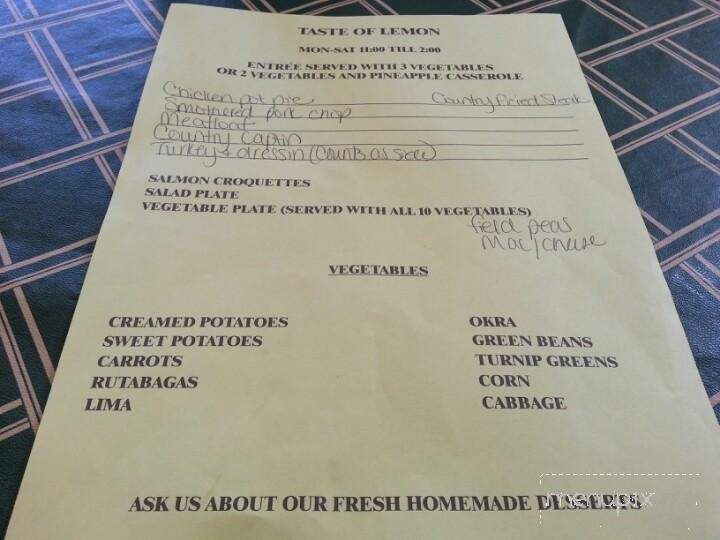 TASTE OF LEMON
MON-SAT 11:00 TILL 2:00
ENTRÉE SERVED WITH 3 VEGETABLES
OR 2 VEGETABLES AND PINEAPPLE CASSEROLE
Chicken pot pie
Country Fried Steak
Smothered pork chop
Meatloaf
Country Captin
Turkey & dressin (Counts as side)
SALMON CROQUETTES
SALAD PLATE
VEGETABLE PLATE (SERVED WITH ALL 10 VEGETABLES)
field peas
Mac/cheese
VEGETABLES
CREAMED POTATOES
OKRA
SWEET POTATOES
GREEN BEANS
CARROTS
TURNIP GREENS
RUTABAGAS
CORN
LIMA
CABBAGE
ASK US ABOUT OUR FRESH HOMEMADE DESSERTS
menupix